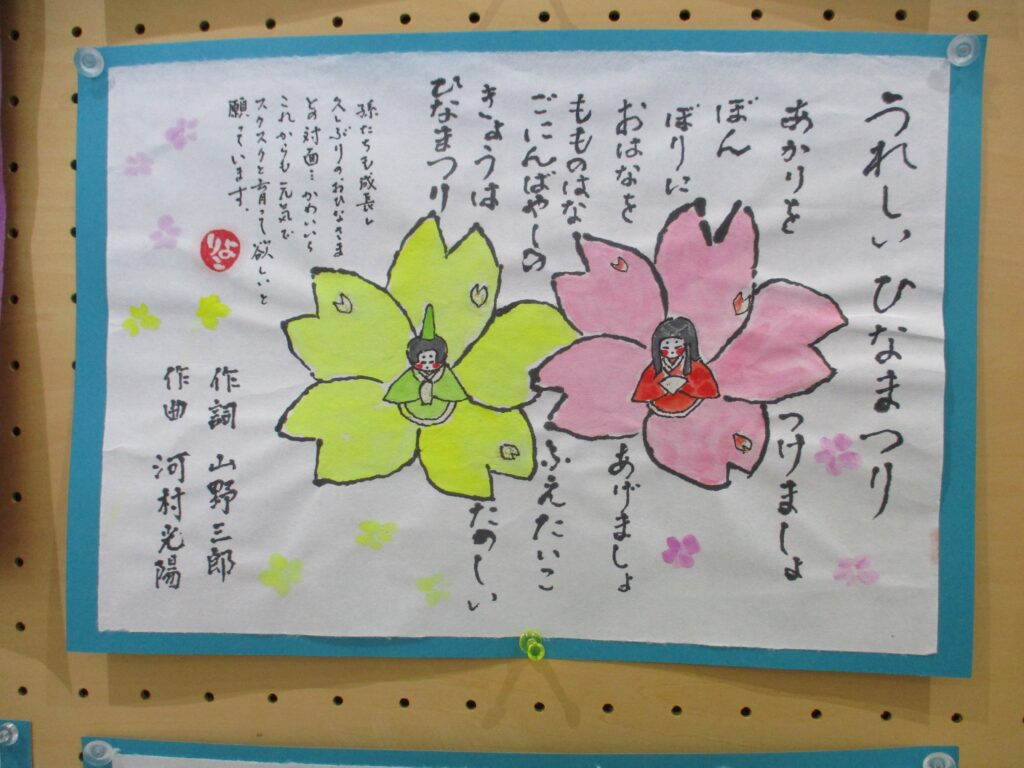 うれしいひなまつり
あかりを つけましょ
ぼん
ぼりに
おはなを あげましょ
ももものはな
ごにんばやしの ふえたいこ
きょうは たのしい
ひなまつり
孫たちも成長し
久しぶりのおひなさま
との対面…かわいいら
これからも元気で
スクスクと育って欲しいと
願っています。
よりこ
作詞 山野三郎
作曲 河村光陽